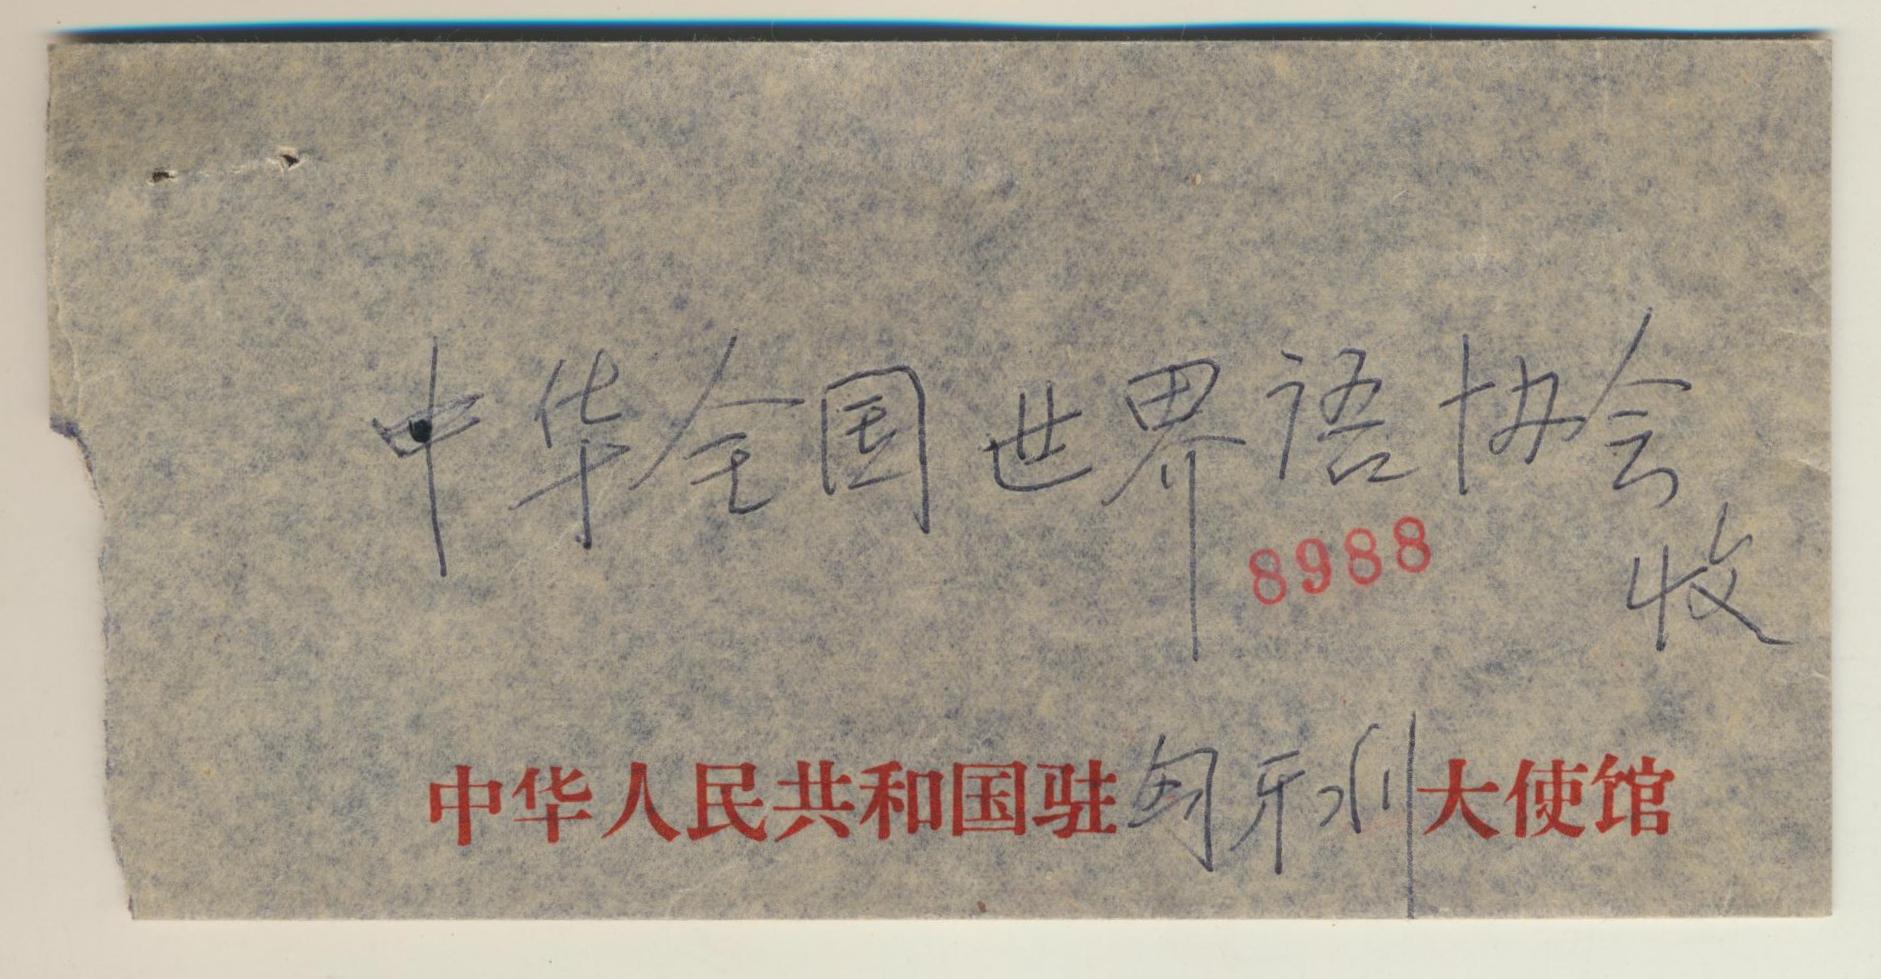 中华全国世界语协会
8988
收
中华人民共和国驻匈牙利大使馆